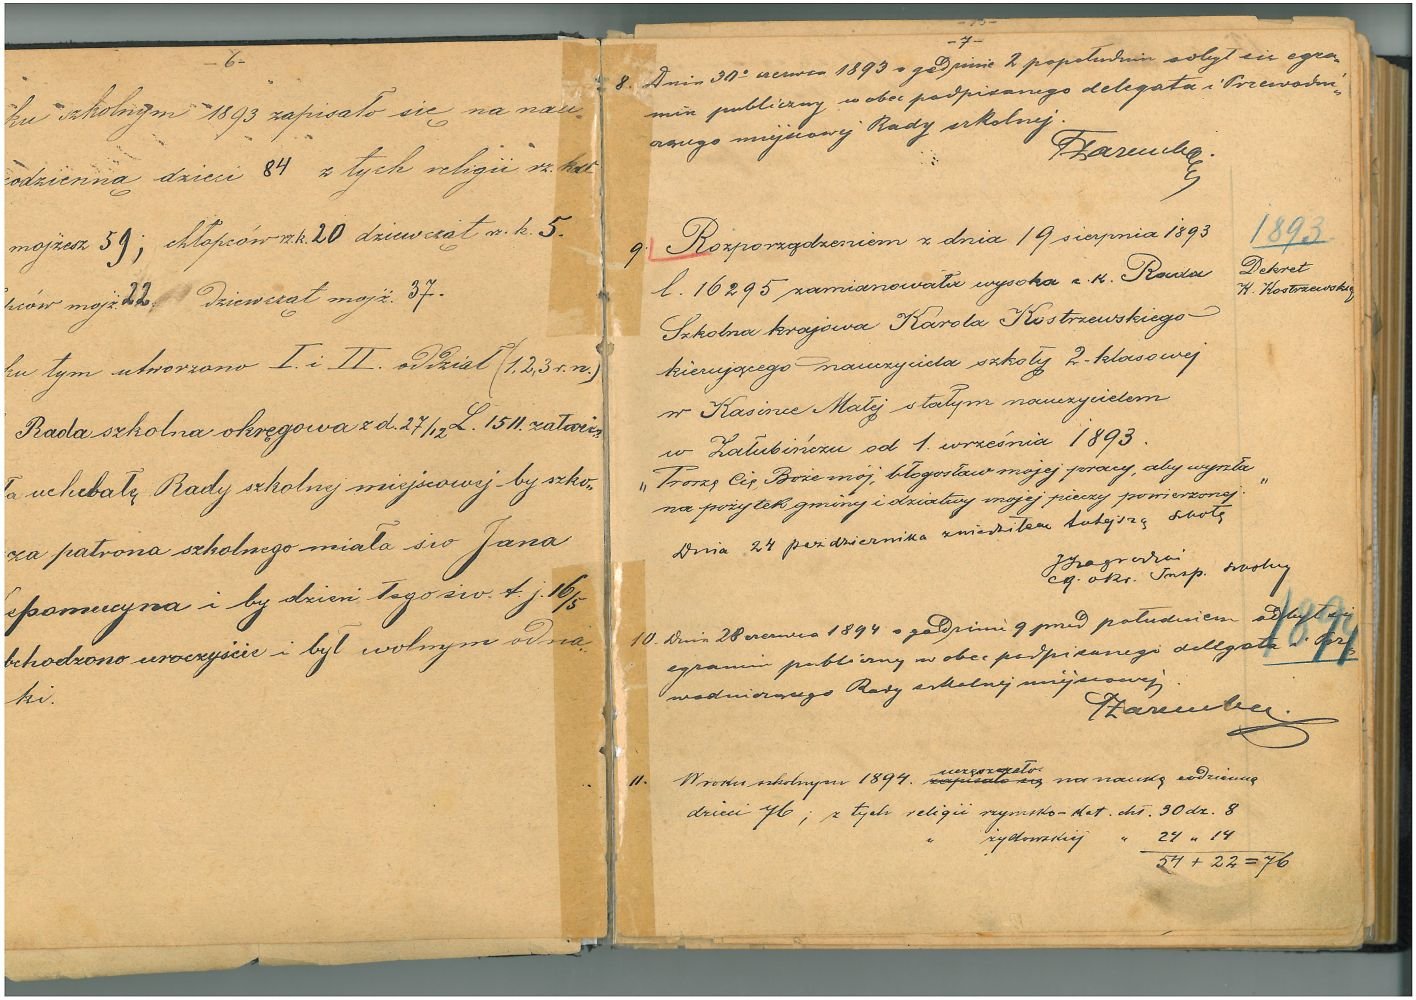 -6-
ku szkolnym 1893 zapisało się na nau-
codzienną dzieci 84 z tych religii rz. kat
mojżesz 59; chłopców rz. k. 20 dziewcząt rz. k. 5.
pców mojż. 22. Dziewcząt mojż. 37.
ku tym utworzono I. i II. oddział (1. 2, 3 r. n.)
Rada szkolna okręgowa z d. 27/12 L. 1511. zatwier-
ła uchchałę Rady szkolnej miejscowej by szko-
za patrona szkolnego miała św Jana
epomucyna i by dzień tego św. t. j. 16/5
bchodzono uroczyście i był wolnym od nau-
ki.
-7-
8. Dnia 30o czerwca 1893 o godzinie 2 popołudniu odbył się egza-
min publiczny wobec podpisanego delegata i Przewodni-
czącego miejscowej Rady szkolnej.
TZaremba
9. Rozporządzeniem z dnia 19 sierpnia 1893
l. 16295 zamianowała wysoka c. k. Rada
Szkolna krajowa Karola Kostrzewskiego
kierującego nauczyciela szkoły 2-klasowej
w Kasince Małej stałym nauczycielem
w Załubińczu od 1. września 1893.
"Proszę Cię, Boże mój, błogosław mojej pracy, aby wyszła
na pożytek gminy i dziatwy mojej pieczy powierzonej."
1893
Dekret
K. Kostrzewskieg
Dnia 24 października zwiedziłem tutejszą szkołę
cq. okr. Insp. szkolny
10. Dnia 28 czerwca 1894 o godzinie 9 przed południem odbył się
egzamin publiczny wobec podpisanego delegata i Prze-
wodniczącego Rady szkolnej miejscowej.
1894
TZaremba.
11. W roku szkolnym 1894. zapisało się uczęszczało na naukę codzienną
dzieci 76; z tych religii rzymsko-kat. chł. 30 dz. 8
" żydowskiej " 24 " 14
54 + 22 = 76